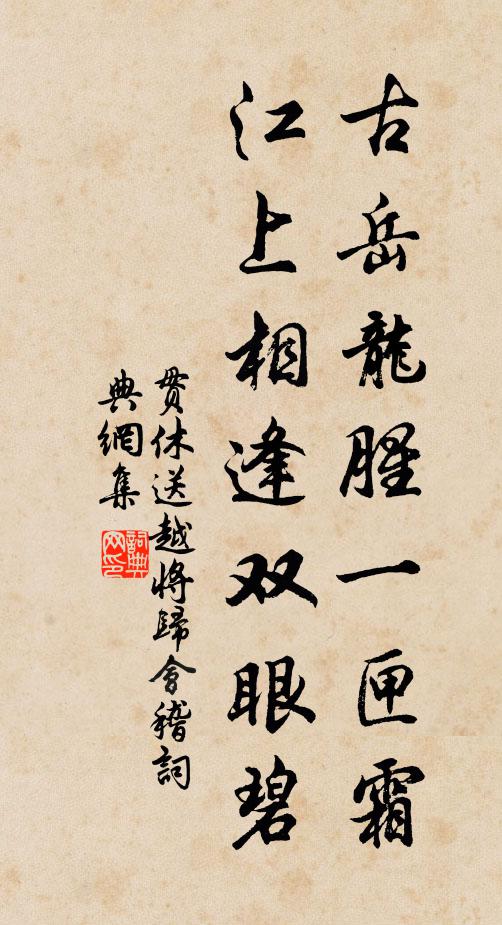 古岳龍腥一匣霜
江上相逢双眼碧
贯休送越將歸會稽詞
典網集
詞典網印